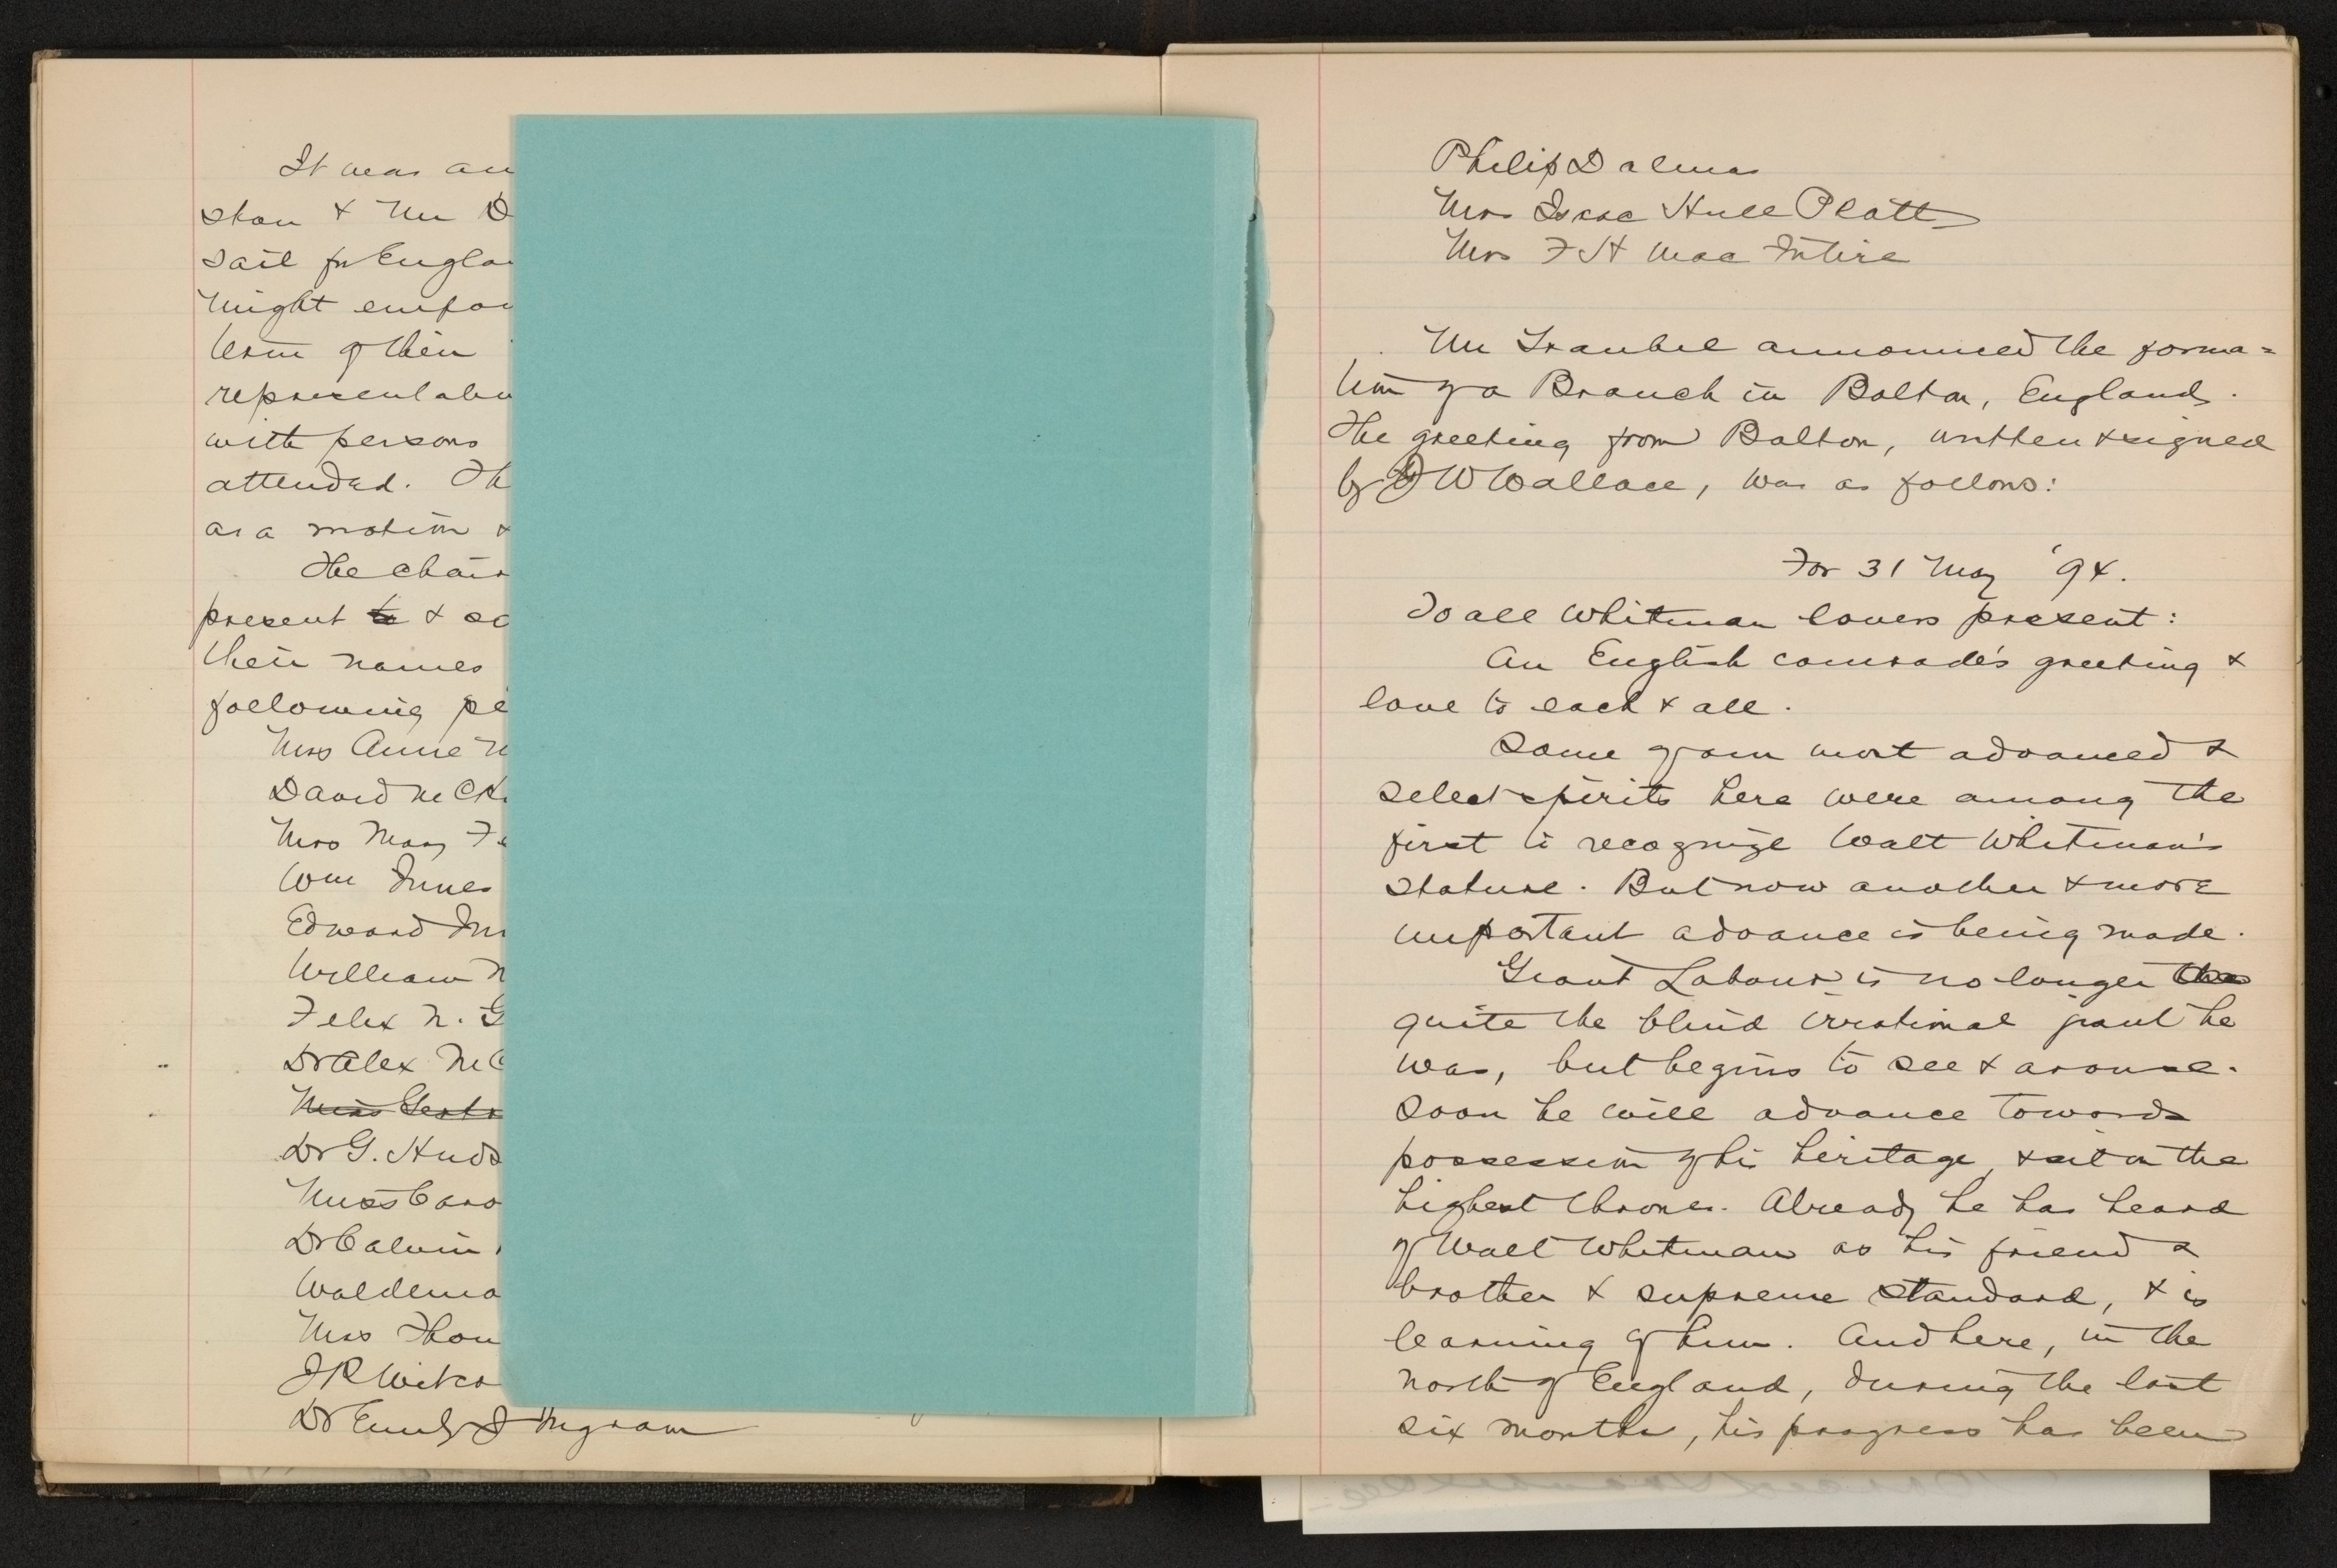 It was an
ston & Mr D
sail for Englan
might empow
tom of their
representativ
with persons
attended. Th
as a motion &
The chair
present to & sc
their names
following pe
Miss Anne M
David McK
Mrs Mary Fe
Wm Innes
Edward Inn
William N
Felix N. G
Dr Alex McC
Miss Gertr
Dr G. Huds
Miss Caro
Dr Calvin
Waldema
Mrs Thom
J R Witco
Dr Emily J Ingram
Philip Dalmas
Mrs Isaac Hull Platt
Mrs F H MacIntire
Mr Traubel announced the forma=
tion of a Branch in Bolton, England.
The greeting from Bolton, written & signed
by J W Wallace, was as follows:
For 31 May '94.
To all Whitman lovers present:
An English comrade's greeting &
love to each & all.
Some of our most advanced &
select spirits here were among the
first to recognize Walt Whitman's
stature. But now another & more
important advance is being made.
Giant Labour is no longer the
quite the blind irrational giant he
was, but begins to see & arouse.
Soon he will advance towards
possession of his heritage, & sit on the
highest thrones. Already he has heard
of Walt Whitman as his friend &
brother & supreme standard, & is
learning of him. And here, in the
north of England, during the last
six months, his progress has been